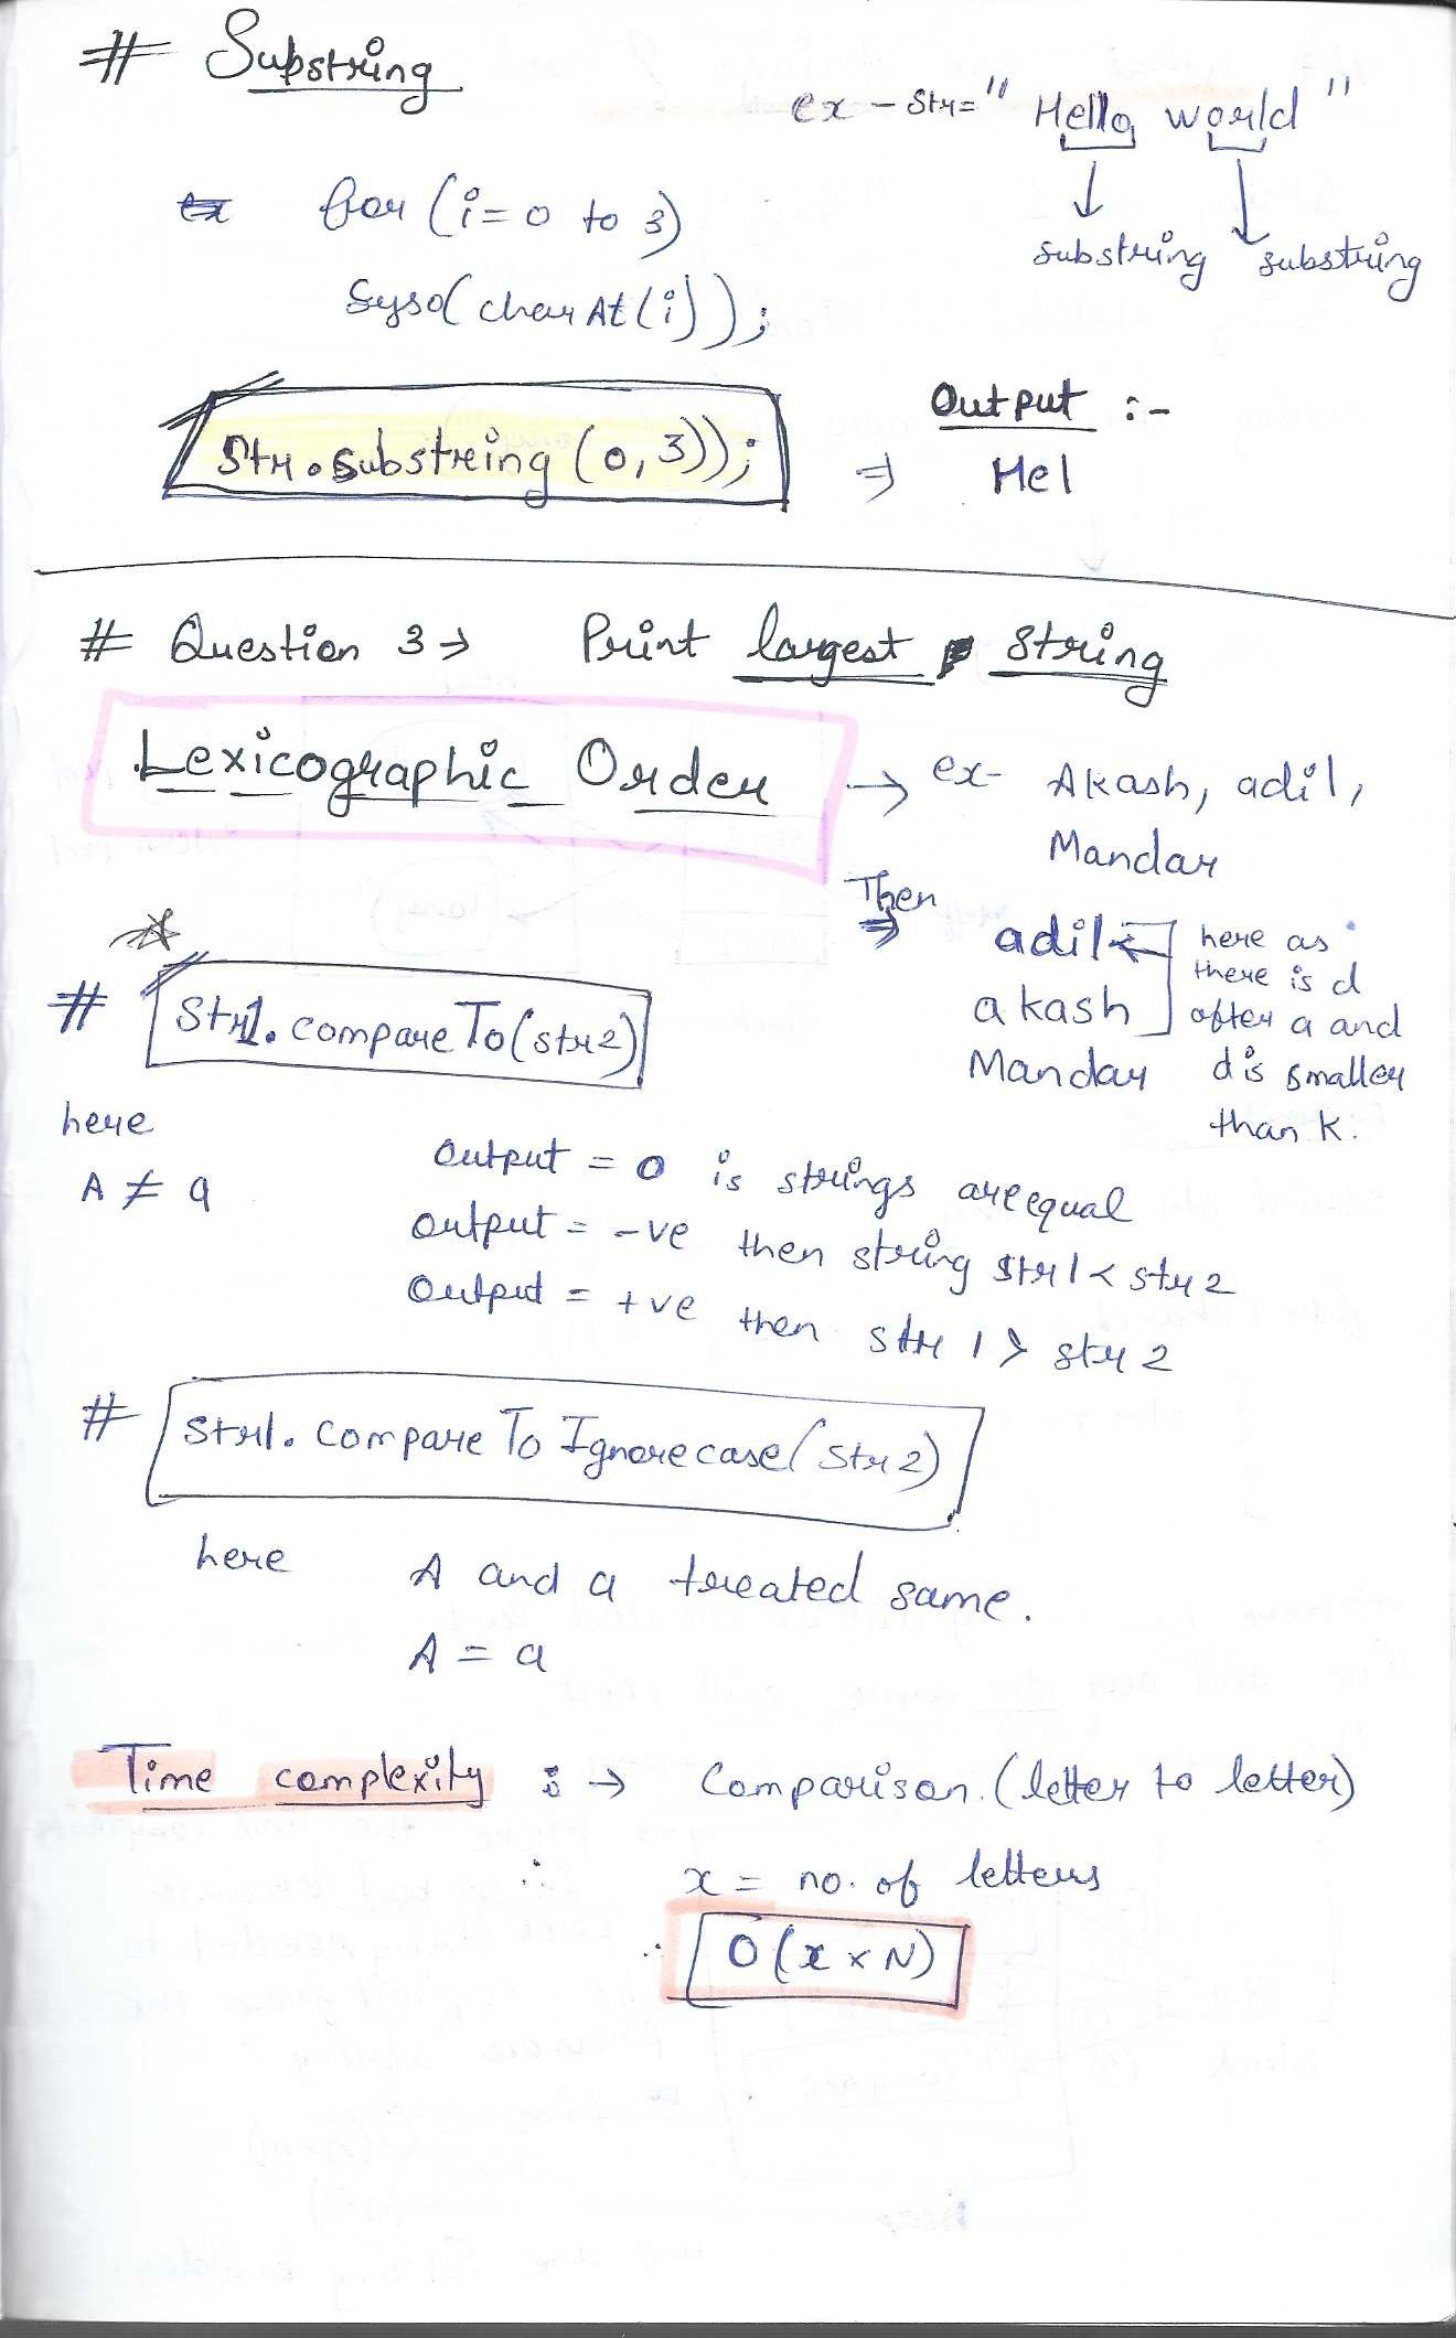 # Substring
ex - Str= " Hello, world "
substring substring
for (i= 0 to 3)
Syso( charAt(i));
Str.substring (0, 3));
Output :-
⇒ Hel
# Question 3 → Print largest string
Lexicographic Order → ex- Akash, adil,
Mandar
Then
⇒ adil ← here as
there is d
akash after a and
Mandar d is smaller
than k.
# Str1. compareTo(str2)
here
A ≠ a
Output = 0 is strings are equal
output = -ve then string str1 < str2
Output = +ve then str 1 > str 2
# Str1. compareTo Ignorecase( Str 2)
here A and a treated same.
A = a
Time complexity : → Comparison. (letter to letter)
∴ x = no. of letters
∴ O (x × N)